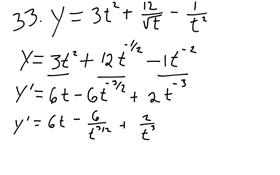 33. y = 3t² + 12/√t - 1/t²
y = 3t² + 12t^(-1/2) - 1t^(-2)
y' = 6t - 6t^(-3/2) + 2t^(-3)
y' = 6t - 6/t^(3/2) + 2/t³